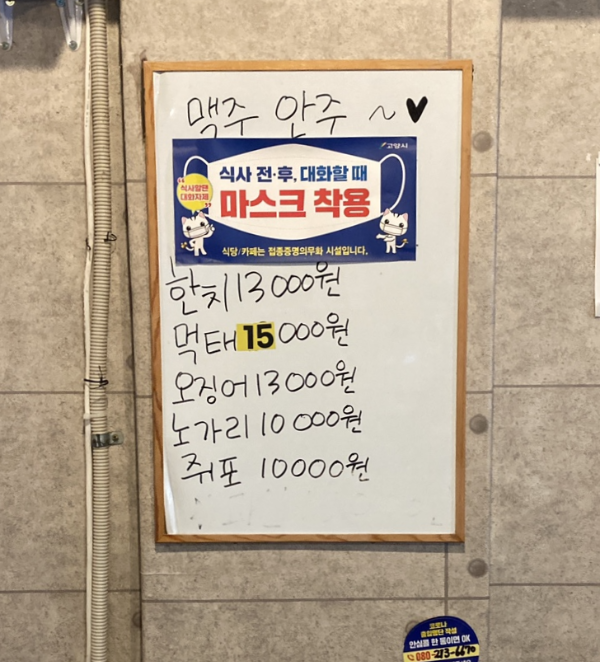 맥주 안주 ~♥
고양시
식사 전·후, 대화할 때
식사할땐
대화자제
마스크 착용
식당/카페는 접종증명의무화 시설입니다.
한치 13000원
먹태 15000원
오징어 13000원
노가리 10000원
쥐포 10000원
코로나
출입명단 작성
안심콜 한 통이면 OK
080-213-6670